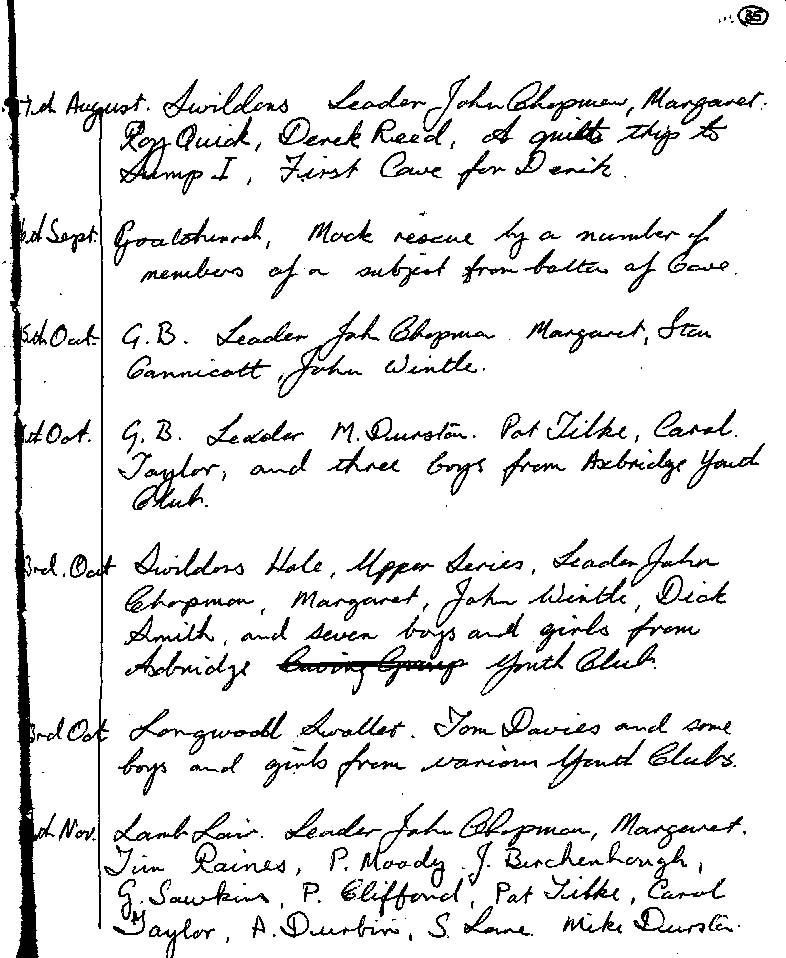 35
7th August. Swildons Leader John Chapman, Margaret.
Roy Quick, Derek Reed, A quick trip to
Sump I, First Cave for Derik.
th Sept. Goatchurch, Mock rescue by a number of
members of a subject from bottom of Cave.
5th Oct. G.B. Leader John Chapman. Margaret, Stan
Cannicott, John Wintle.
Oct. G.B. Leader M. Durston. Pat Tilke, Carol.
Taylor, and three boys from Axbridge Youth
Club.
3rd. Oct Swildons Hole, Upper Series, Leader John
Chapman, Margaret, John Wintle, Dick
Smith, and seven boys and girls from
Axbridge Caving Group Youth Club.
3rd Oct Longwood Swallet. Tom Davies and some
boys and girls from various Youth Clubs.
th Nov. Lamb Lair. Leader John Chapman, Margaret.
Tim Raines, P. Moody. J. Birchenhough,
G. Sawkins, P. Clifford, Pat Tilke, Carol
Taylor, A. Durbin, S. Lane. Mike Durston.